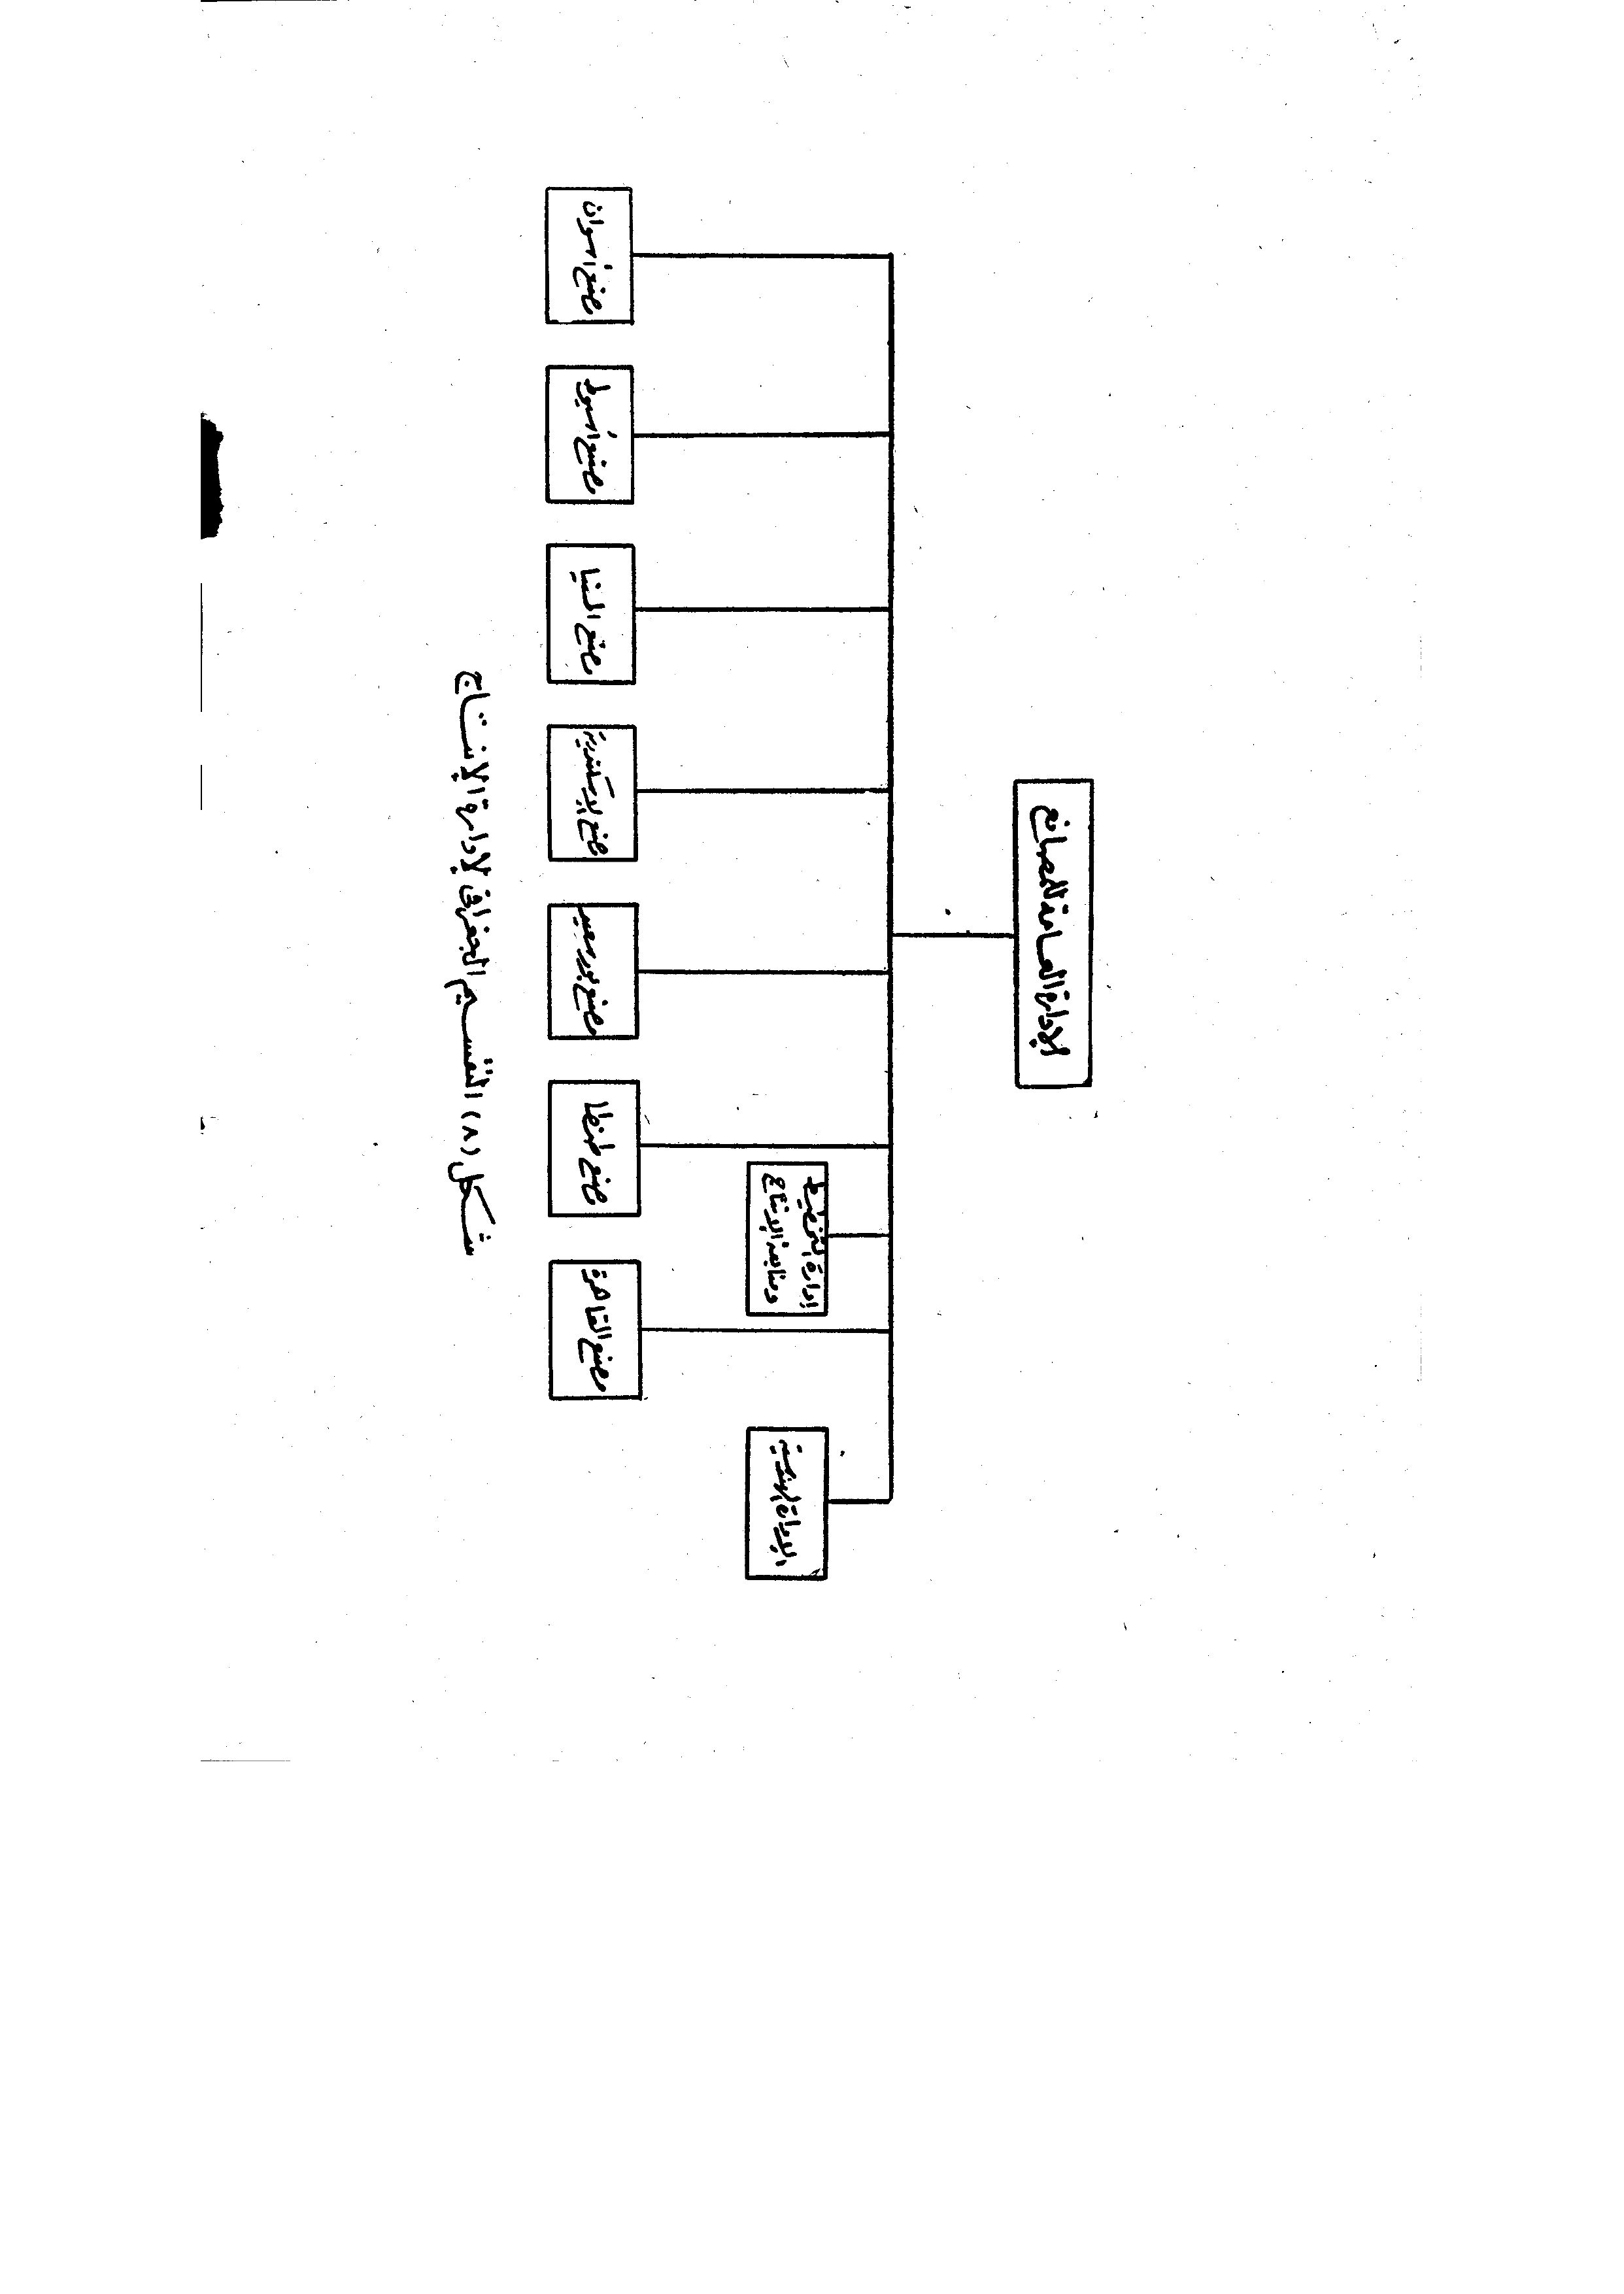 الإدارة العامة للمصانع
الإدارة الهندسية
إدارة التخطيط
ومتابعة الإنتاج
مصنع القاهرة
مصنع طنطا
مصنع بورسعيد
مصنع الإسكندرية
مصنع المنيا
مصنع أسيوط
مصنع أسوان
شكل (٨) التقسيم الجغرافى لإدارة الإنتاج